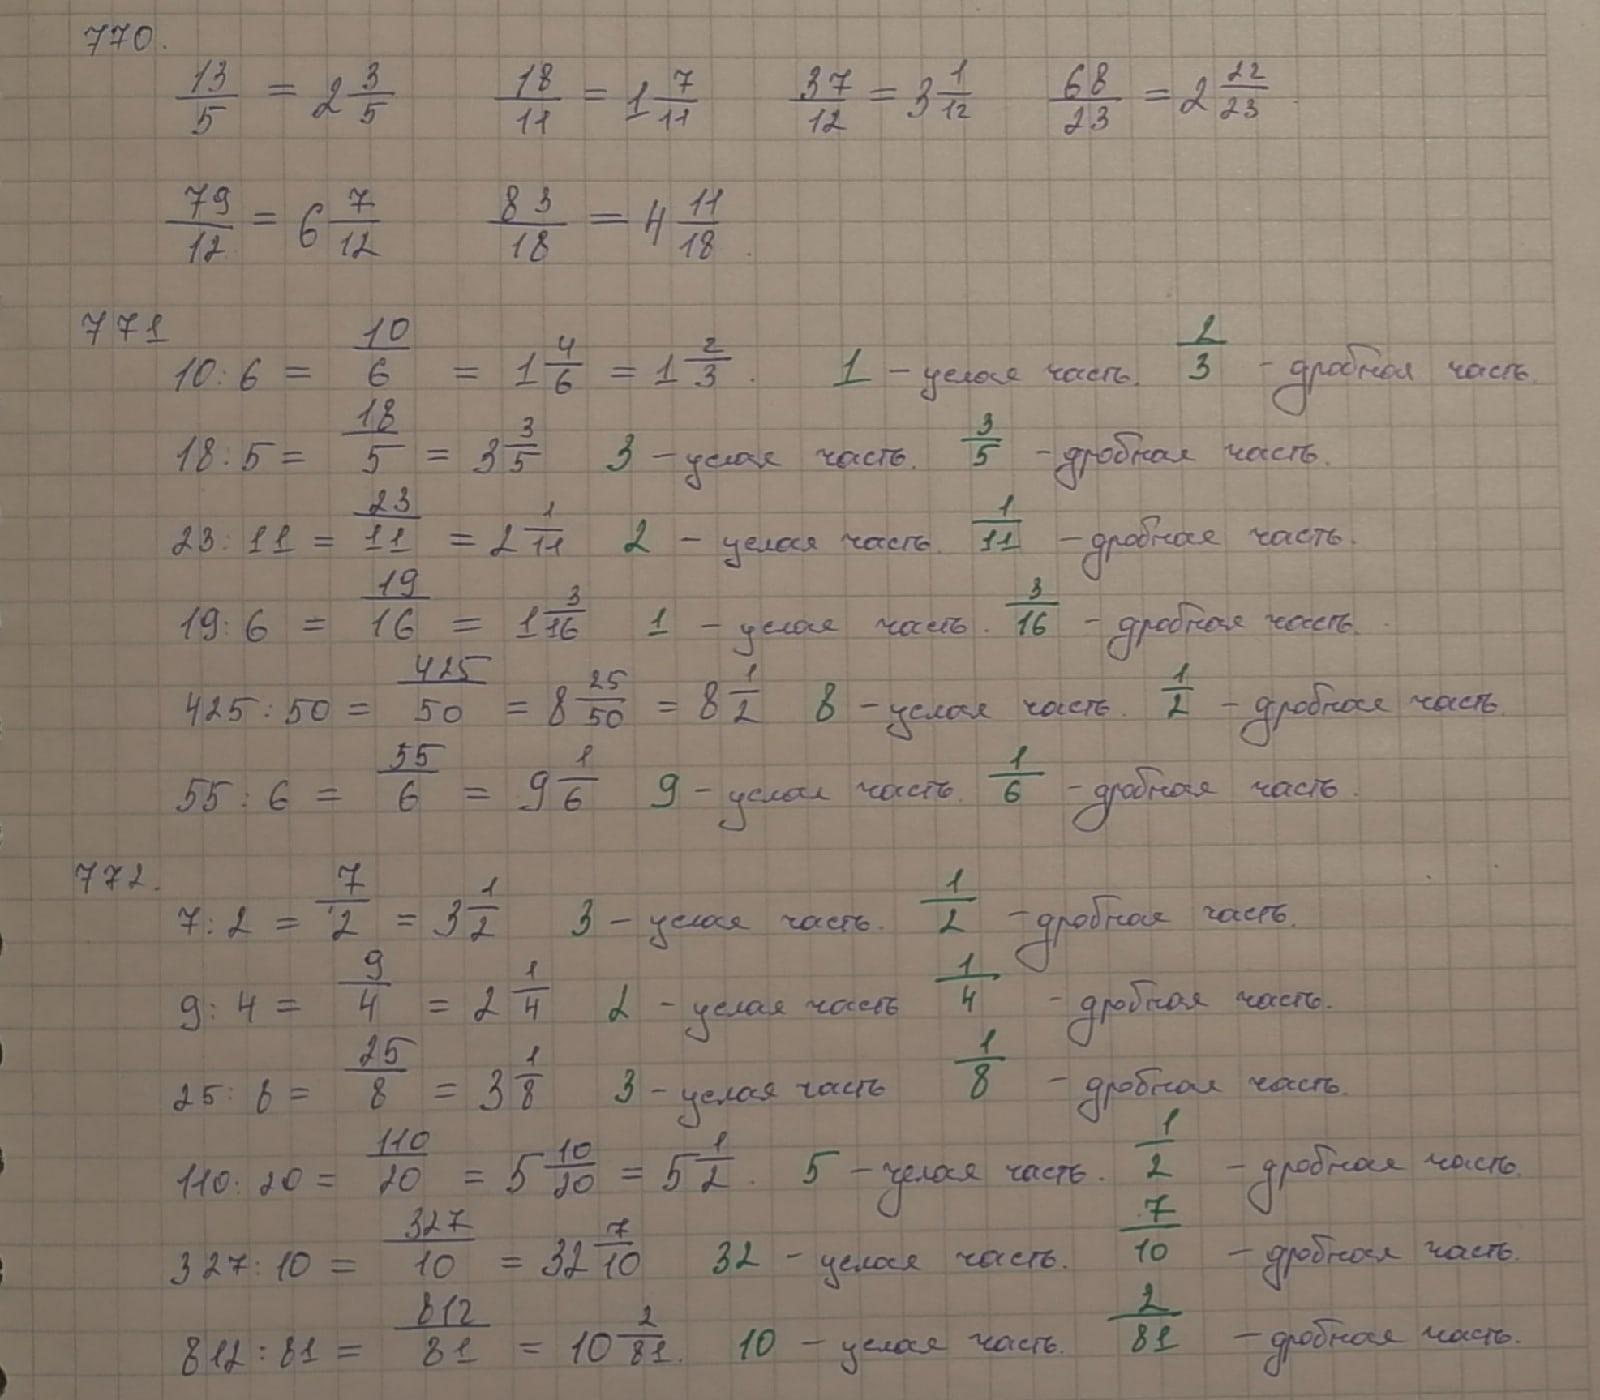 770.
13/5 = 2 3/5 18/11 = 1 7/11 37/12 = 3 1/12 68/23 = 2 22/23
79/12 = 6 7/12 83/18 = 4 11/18
771
10:6 = 10/6 = 1 4/6 = 1 2/3. 1 – целая часть. 2/3 – дробная часть.
18:5 = 18/5 = 3 3/5 3 – целая часть. 3/5 – дробная часть.
23:11 = 23/11 = 2 1/11 2 – целая часть. 1/11 – дробная часть.
19:6 = 19/16 = 1 3/16 1 – целая часть. 3/16 – дробная часть.
425:50 = 425/50 = 8 25/50 = 8 1/2 8 – целая часть. 1/2 – дробная часть.
55:6 = 55/6 = 9 1/6 9 – целая часть. 1/6 – дробная часть.
772.
7:2 = 7/2 = 3 1/2 3 – целая часть. 1/2 – дробная часть.
9:4 = 9/4 = 2 1/4 2 – целая часть 1/4 – дробная часть.
25:8 = 25/8 = 3 1/8 3 – целая часть 1/8 – дробная часть.
110:20 = 110/20 = 5 10/20 = 5 1/2. 5 – целая часть. 1/2 – дробная часть.
327:10 = 327/10 = 32 7/10 32 – целая часть. 7/10 – дробная часть.
812:81 = 812/81 = 10 2/81. 10 – целая часть. 2/81 – дробная часть.